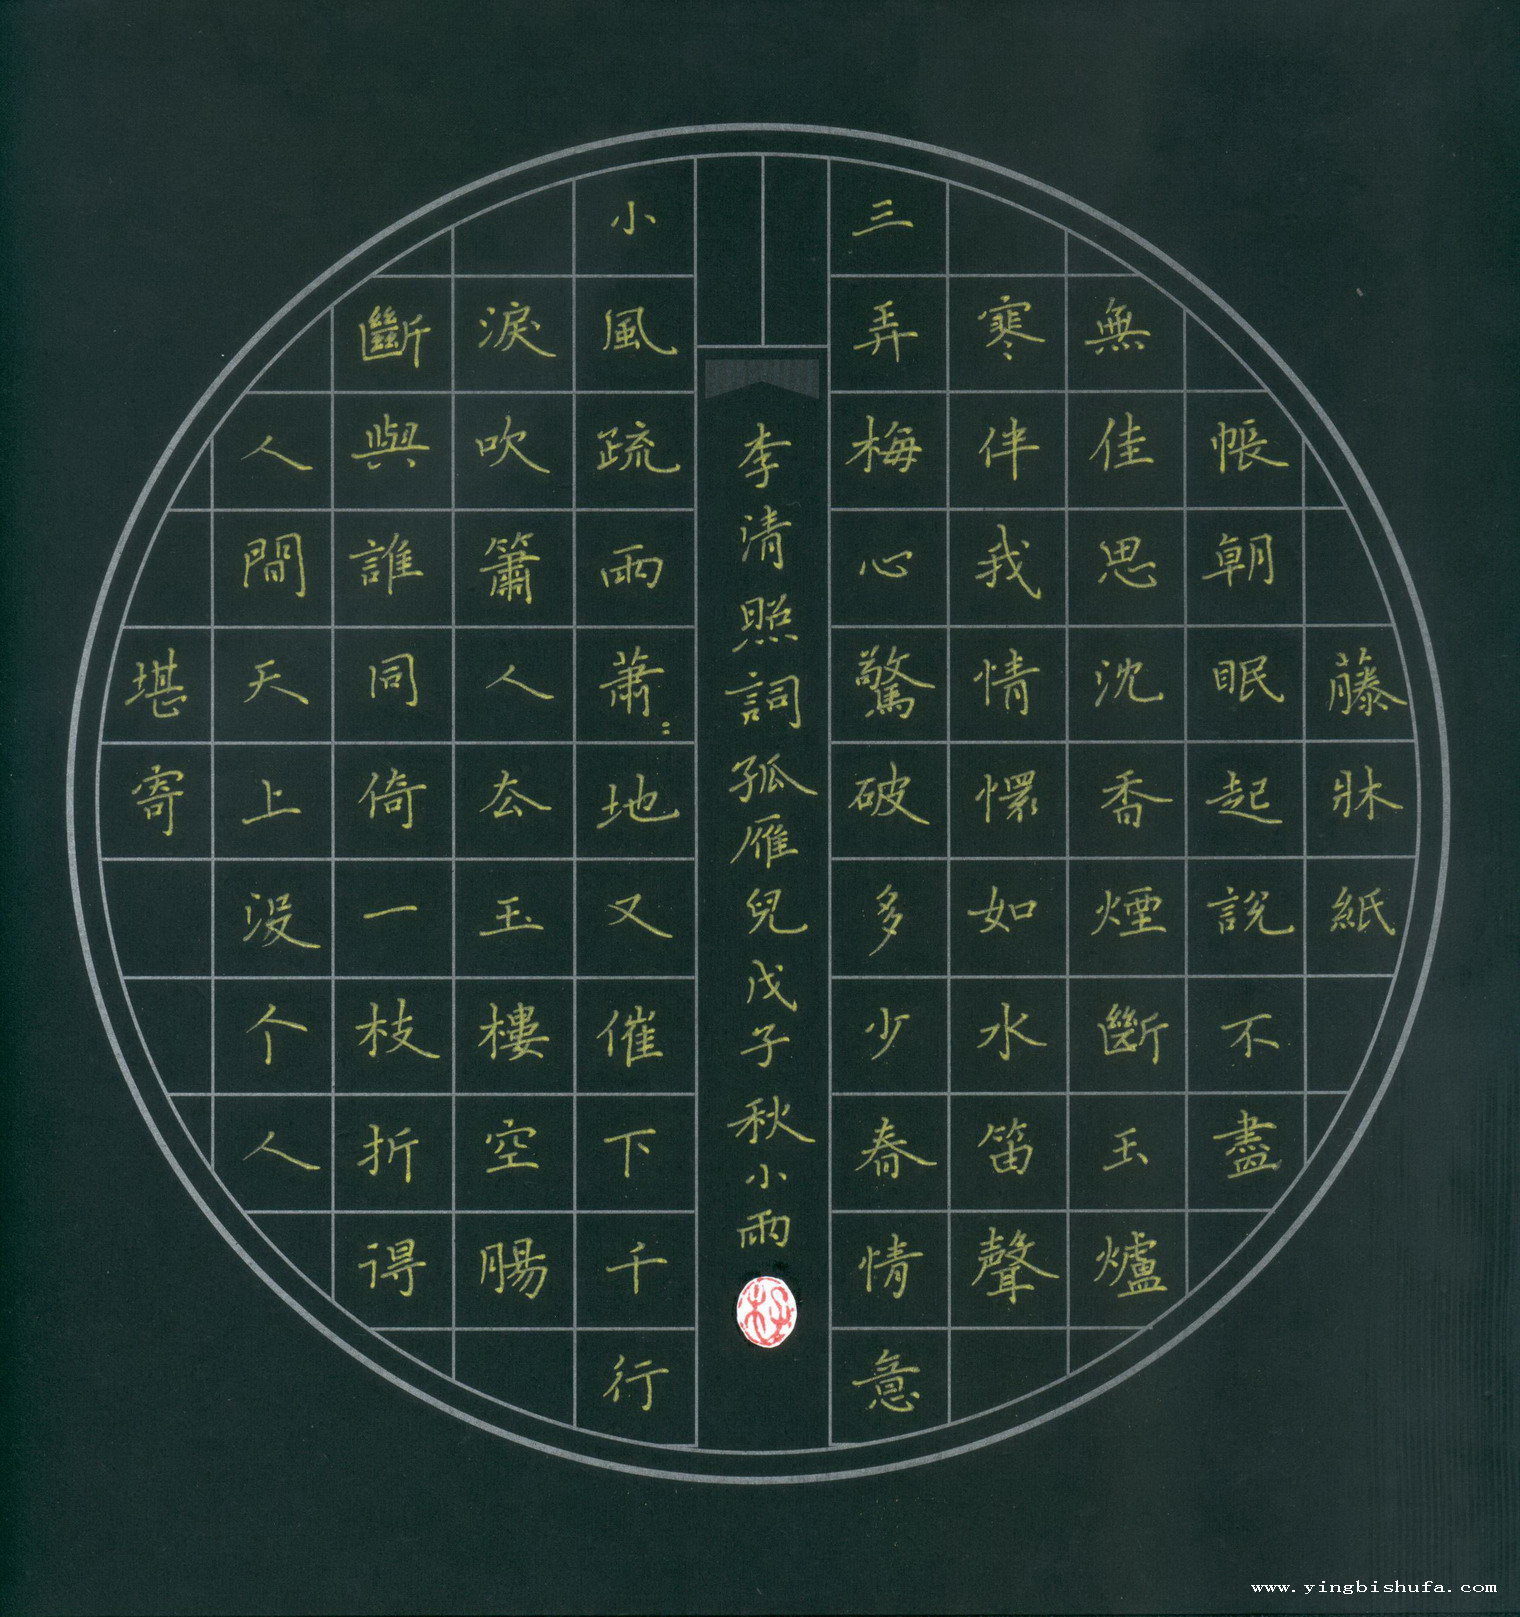 藤牀紙
帳朝眠起說不盡
無佳思沈香煙斷玉爐
寒伴我情懷如水笛聲
三弄梅心驚破多少春情意
李清照詞孤雁兒戊子秋小雨
小風疏雨蕭：地又催下千行
淚吹簫人去玉樓空腸
斷與誰同倚一枝折得
人間天上没个人
堪寄
www.yingbishufa.com